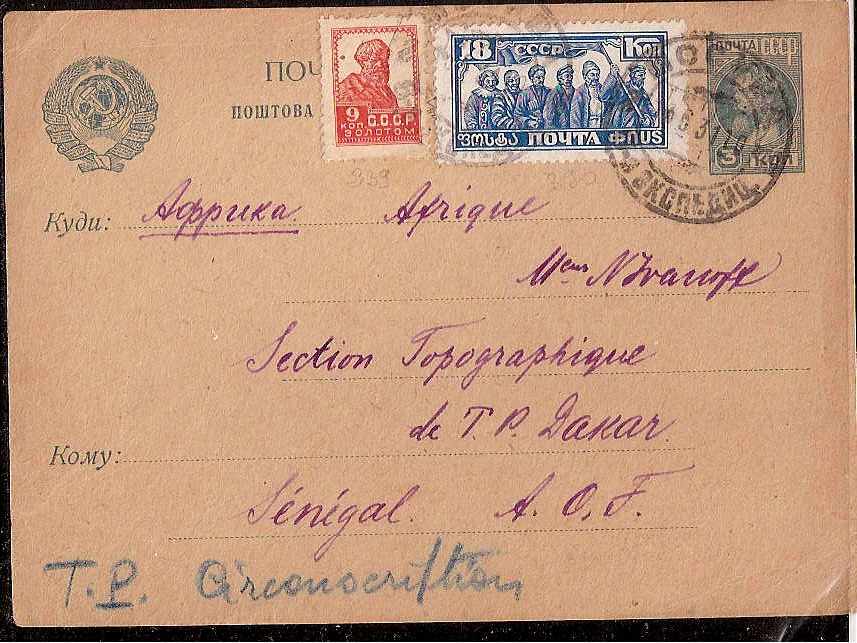 ПОЧ
ПОШТОВА
9
КОП. С.С.С.Р.
ЗОЛОТОМ
18 СССР Коп
ფოსტა ПОЧТА ФПUS
ПОЧТА СССР
3 КОП
ЭКСПЕДИЦ.
339
Куди: Африка. Afrique
Mr NIvanoff
Section Topographique
de T. P. Dakar.
Кому:
Sénégal. A. O. F.
T.P. Circonscription